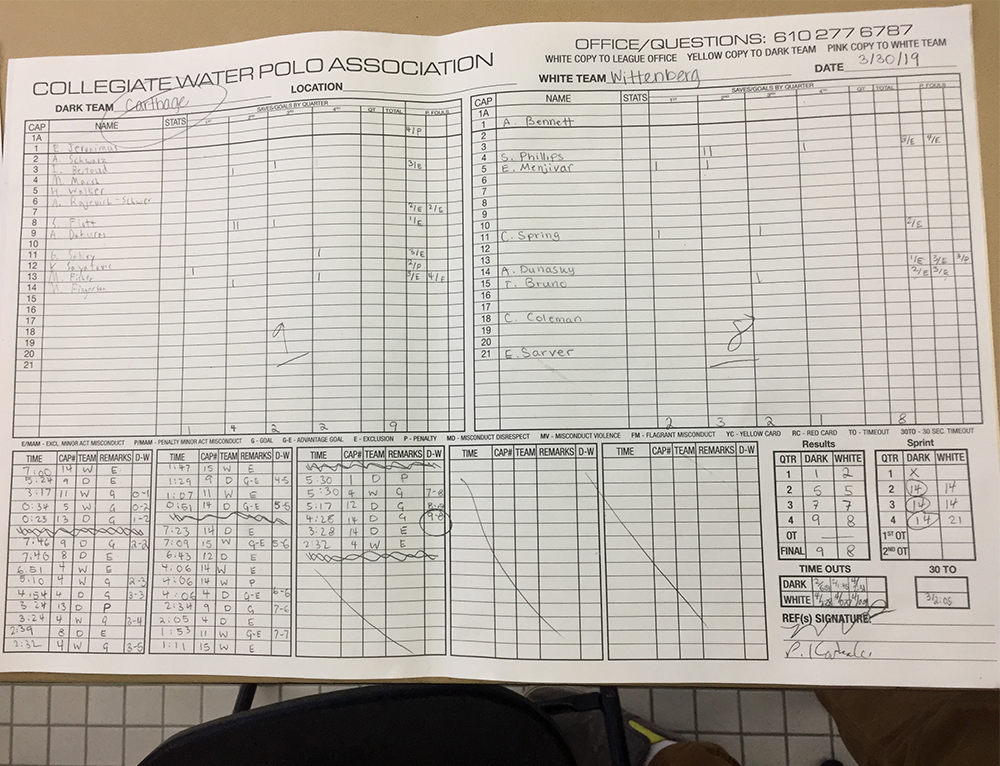 COLLEGIATE WATER POLO ASSOCIATION
OFFICE/QUESTIONS: 610 277 6787
WHITE COPY TO LEAGUE OFFICE YELLOW COPY TO DARK TEAM PINK COPY TO WHITE TEAM
DARK TEAM Carthage LOCATION WHITE TEAM Wittenberg DATE 3/30/19
CAP NAME STATS SAVES/GOALS BY QUARTER 1ST 2ND 3RD 4TH OT TOTAL P. FOULS
1A 4/P
1 E. Jeronimus
2 A. Schwarz
3 L. Bertaud 3/E
4 M. Marsh
5 H. Walker
6 A. Rajcevich-Schwer
7
8 2/E 2/E
9 A. 1/E
10
11
12 3/E
13 M. Fisher 2/P
14 3/E 4/E
15
16
17
18
19
20
21
9
1 4 2 2 9
CAP NAME STATS SAVES/GOALS BY QUARTER 1ST 2ND 3RD 4TH OT TOTAL P. FOULS
1A
1 A. Bennett
2
3
4 S. Phillips 3/E 4/E
5 E. Menjivar
6
7
8
9
10
11 C. Spring 2/E
12
13
14 A. Dunasky 1/E 3/E 3/P
15 T. Bruno 2/E 3/E
16
17
18 C. Coleman
19
20
21 E. Sarver
8
2 3 2 1 8
E/MAM - EXCL. MINOR ACT MISCONDUCT P/MAM - PENALTY MINOR ACT MISCONDUCT G - GOAL G-E - ADVANTAGE GOAL E - EXCLUSION P - PENALTY MD - MISCONDUCT DISRESPECT MV - MISCONDUCT VIOLENCE FM - FLAGRANT MISCONDUCT YC - YELLOW CARD RC - RED CARD TO - TIMEOUT 30TO - 30 SEC. TIMEOUT
TIME CAP# TEAM REMARKS D-W
7:00 14 W E
5:24 9 D E
3:17 11 W G 0-1
0:34 5 W G 0-2
0:23 13 D G 1-2
7:46 9 D G 2-2
7:46 8 D E
6:51 4 W E
5:10 4 W G 2-3
4:54 4 D G 3-3
3:24 13 D P
3:24 4 W G 3-4
2:39 8 D E
2:32 4 W G 3-5
TIME CAP# TEAM REMARKS D-W
1:47 15 W E
1:29 9 D G-E 4-5
1:07 11 W E
0:51 14 D G-E 5-5
7:23 14 D E
7:09 15 W G-E 5-6
6:43 12 D E
4:06 14 W E
4:06 14 W P
4:06 4 D G-E 6-6
2:34 9 D G 7-6
2:05 4 D E
1:53 11 W G-E 7-7
1:11 15 W E
TIME CAP# TEAM REMARKS D-W
5:30 1 D P
5:30 4 W G 7-8
5:17 12 D G 8-8
4:28 14 D G 9-8
3:28 14 D E
2:32 4 W E
TIME CAP# TEAM REMARKS D-W
TIME CAP# TEAM REMARKS D-W
Results
QTR DARK WHITE
1 1 2
2 5 5
3 7 7
4 9 8
OT
FINAL 9 8
Sprint
QTR DARK WHITE
1 X
2 14 14
3 14 14
4 14 21
1ST OT
2ND OT
TIME OUTS 30 TO
DARK
WHITE 3/2:05
REF(s) SIGNATURE: